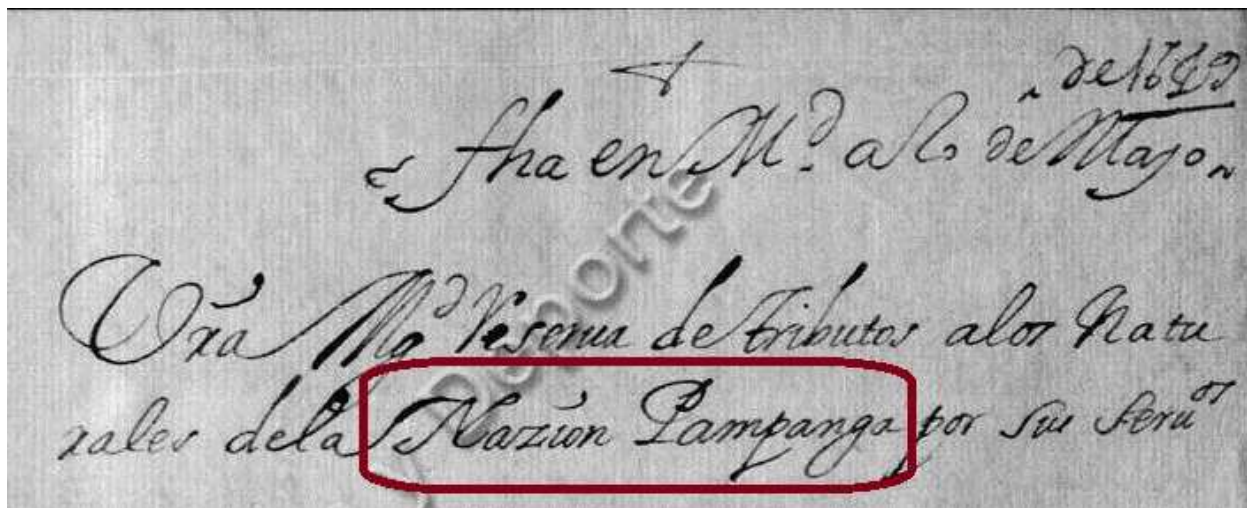 de
fha en M.ᵈ a de Mayo
Vra Mgᵈ Reserua de tributos alos Natu
rales dela Nazion Pampanga por sus seruᵒˢ
Deporte